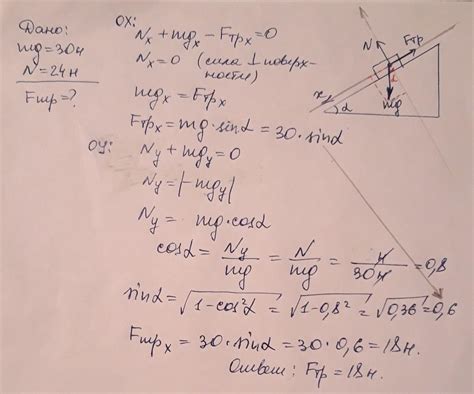 Дано:
mg=30н
N=24н
Fтр=?
OX:
Nx+mgx-Fтрx=0
Nx=0 (сила ⊥ поверх-
ности)
mgx=Fтрx
Fтрx=mg·sinα=30·sinα
OY:
Ny+mgy=0
Ny=|-mgy|
Ny= mg·cosα
cosα=Ny/mg=N/mg=н/30н=0,8
sinα=√1-cos²α=√1-0,8²=√0,36=0,6
Fтрx=30·sinα=30·0,6=18н.
Ответ: Fтр=18н.
N
Fтр
x
α
α
mg